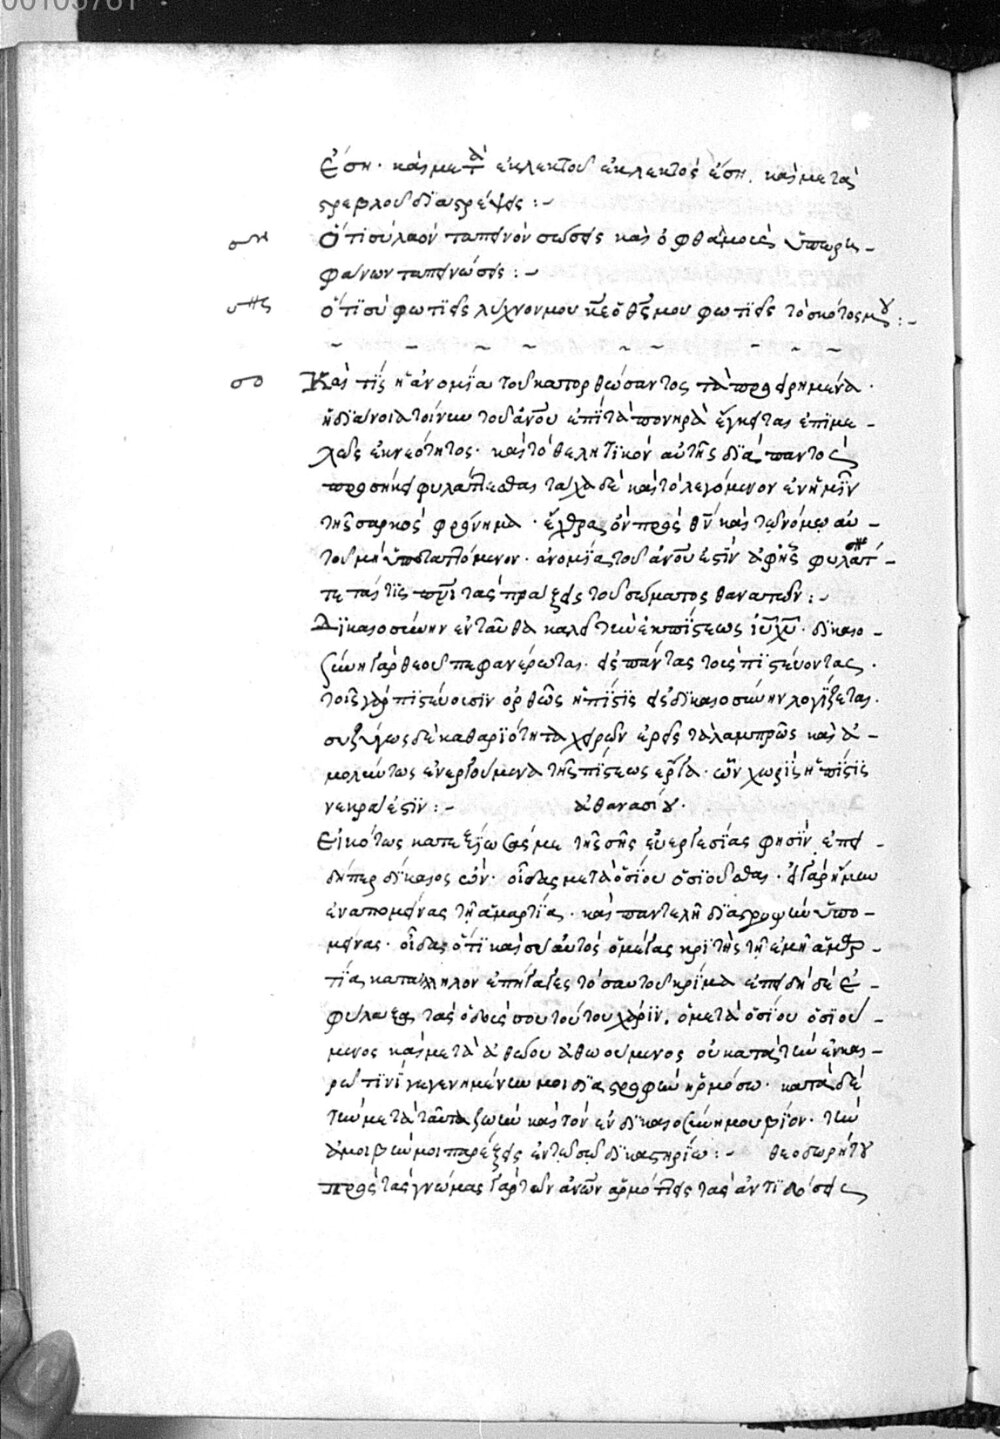 ἔση · καὶ μετὰ ἐκλεκτοῦ ἐκλεκτὸς ἔση · καὶ μετὰ
στρεβλοῦ διαστρέψεις :~
ὅτι σὺ λαὸν ταπεινὸν σώσεις καὶ ὀφθαλμοὺς ὑπερη-
φάνων ταπεινώσεις :~
ὅτι σὺ φωτιεῖς λύχνον μου κε ὁ θς μου φωτιεῖς τὸ σκότος μου :~
σο Καὶ τίς ἡ ἀνομία τοῦ κατορθώσαντος τὰ προειρημένα ·
ἡ διάνοια τοίνυν τοῦ ἀνου ἐπὶ τὰ πονηρὰ ἔγκειται ἐπιμε-
λῶς ἐκ νεότητος · καὶ τὸ θελητικὸν αὐτῆς διὰ παντὸς
προσήκει φυλάττεσθαι τάχα δὲ καὶ τὸ λεγόμενον ἐν ἡμῖν
τῆς σαρκὸς φρόνημα · ἔχθρας ὂν πρὸς θν καὶ τῷ νόμῳ αὐ-
τοῦ μὴ ὑποταττόμενον · ἀνομία τοῦ ἀνου ἐστὶν ἀφ' ἧς φυλάτ-
τεται τις πνι τὰς πράξεις τοῦ σώματος θανατῶν :~
Δικαιοσύνην ἐνταῦθα καλεῖ τὴν ἐκ πίστεως ιυ χυ · δικαιο-
σύνη γὰρ θεοῦ πεφανέρωται · εἰς πάντας τοὺς πιστεύοντας ·
τοῖς γὰρ πιστεύουσιν ὀρθῶς ἡ πίστις εἰς δικαιοσύνην λογίζεται ·
συζύγως δὲ καθαριότητα χειρῶν ἐρεῖς τὰ λαμπρῶς καὶ ἀ-
μολύντως ἐνεργούμενα τῆς πίστεως ἔργα · ὧν χωρὶς ἡ πίστις
νεκρά ἐστιν :~ ἀθανασίου ·
Εἰκότως κατηξίωσέ με τῆς σῆς εὐεργεσίας φησὶν ἐπει-
δήπερ δίκαιος ὤν · οἶδας μετὰ ὁσίου ὁσιοῦσθαι · εἰ γὰρ ἤμην
ἐναπομείνας τῇ ἁμαρτίᾳ · καὶ παντελῆ διαστροφὴν ὑπο-
μείνας · οἶδας ὅτι καὶ σὺ αὐτὸς ὁ μέγας κριτὴς τῇ ἐμῇ ἁμαρ-
τίᾳ κατάλληλον ἐπήγαγες τὸ σαυτοῦ κρίμα ἐπειδὴ δὲ ἐ-
φύλαξα τὰς ὁδούς σου τούτου χάριν · ὁ μετὰ ὁσίου ὁσιού-
μενος καὶ μετὰ ἀθώου ἀθωούμενος οὐ κατὰ τὴν ἐν και-
ρῷ τινὶ γεγενημένην μοι διαστροφὴν ἡρμόσω · κατὰ δὲ
τὴν μετὰ ταῦτα ζωὴν καὶ τὸν ἐν δικαιοσύνῃ μου βίον · τὴν
ἀμοιβήν μοι παρέξεις ἐν τῷ σῷ δικαστηρίῳ :~ θεοδωρήτου
πρὸς τὰς γνώμας γὰρ τῶν ἀνων ἁρμόττεις τὰς ἀντιδόσεις